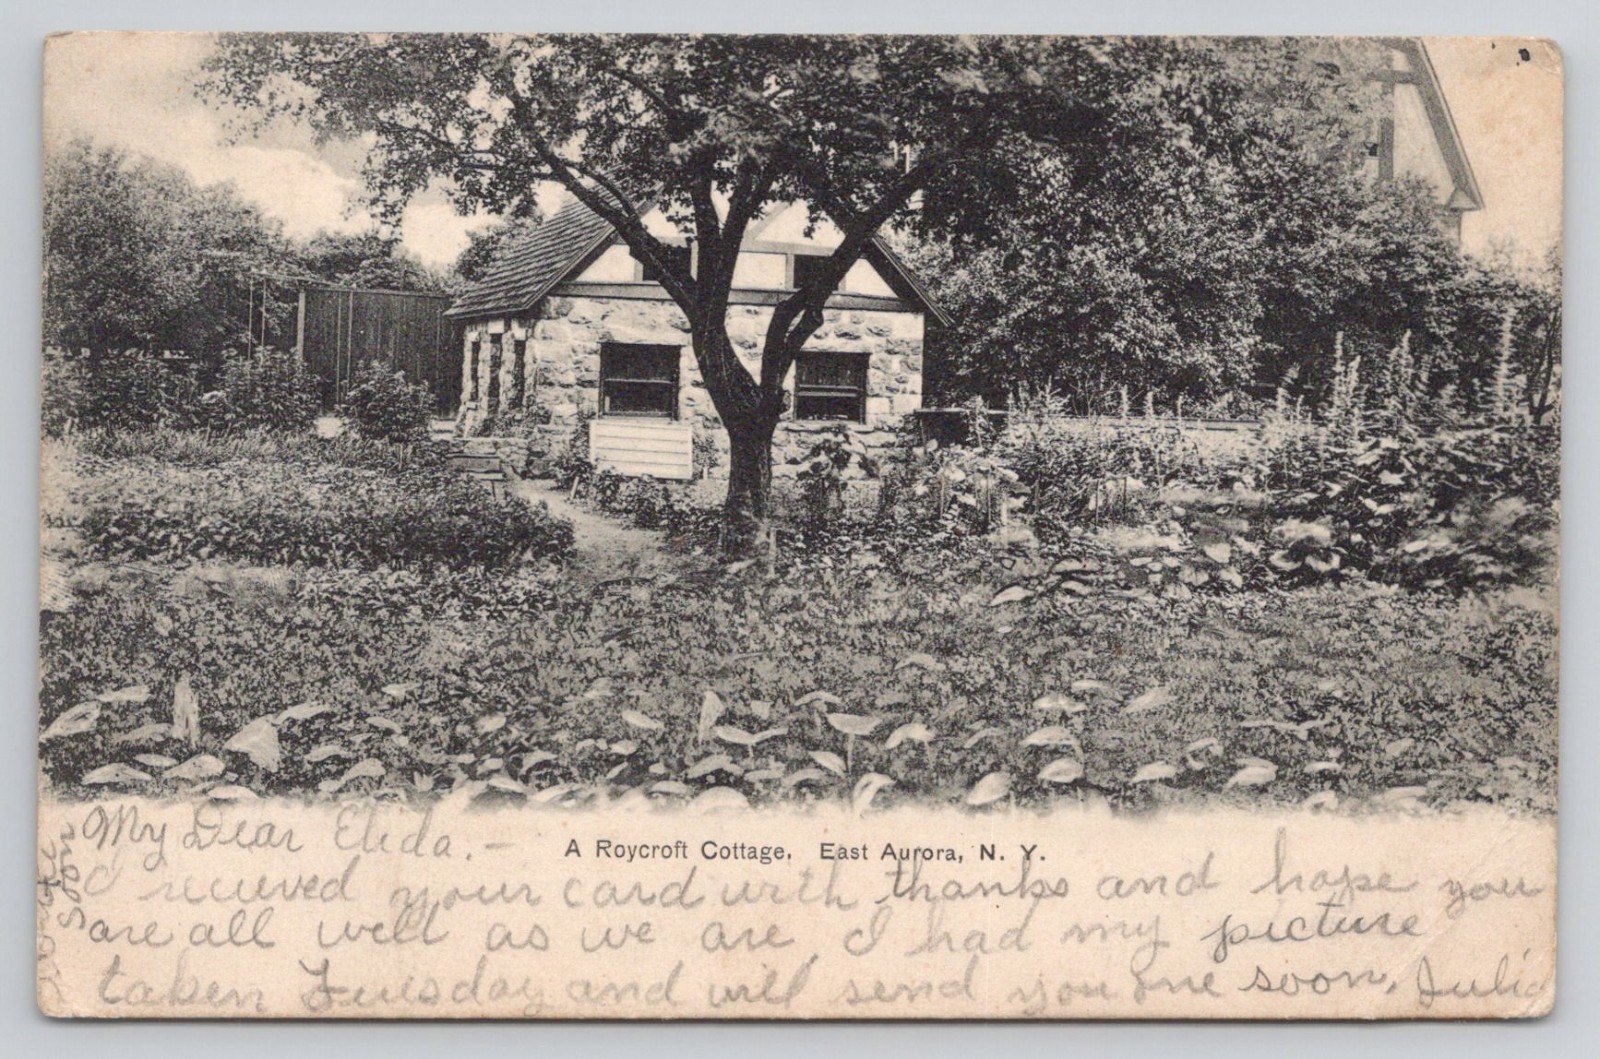 A Roycroft Cottage. East Aurora, N. Y.
My Dear Elida. -
I recieved your card with thanks and hope you
are all well as we are, I had my picture
taken Tuesday and will send you one soon, Julia
soon